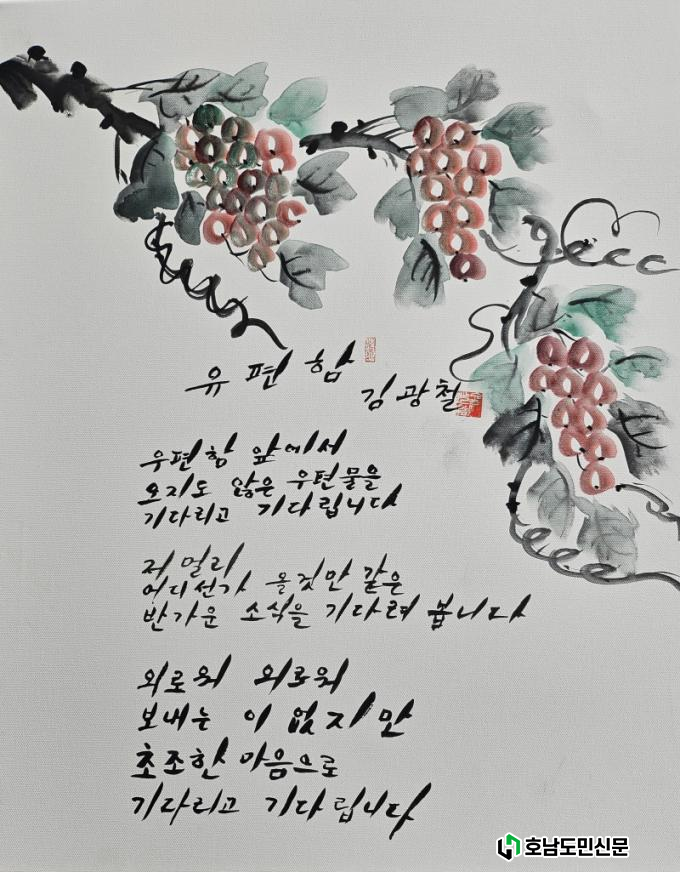 우편함
김광철
우편함 앞에서
오지도 않은 우편물을
기다리고 기다립니다
저 멀리
어디선가 올것만 같은
반가운 소식을 기다려 봅니다
외로워 외로워
보내는 이 없지만
초조한 마음으로
기다리고 기다립니다
호남도민신문